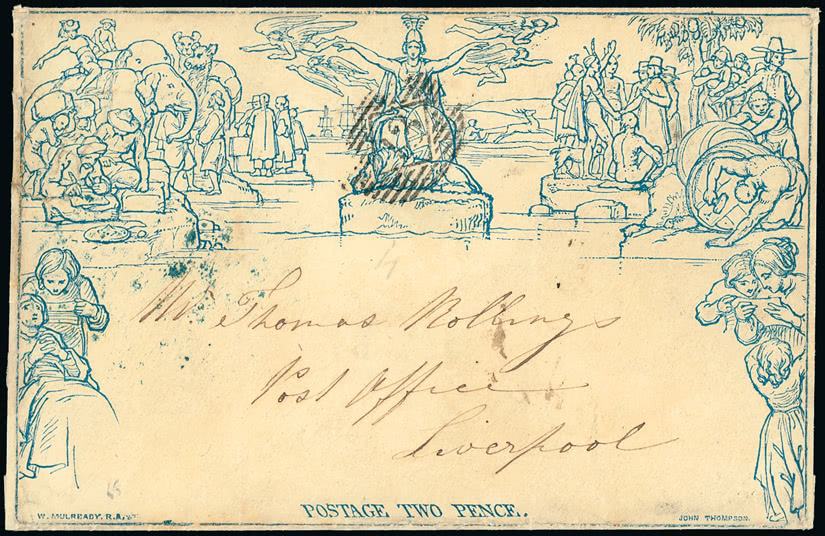 Mr. Thomas Nollings
Post Office
Liverpool
W. MULREADY. R.A.
POSTAGE TWO PENCE.
JOHN THOMPSON.